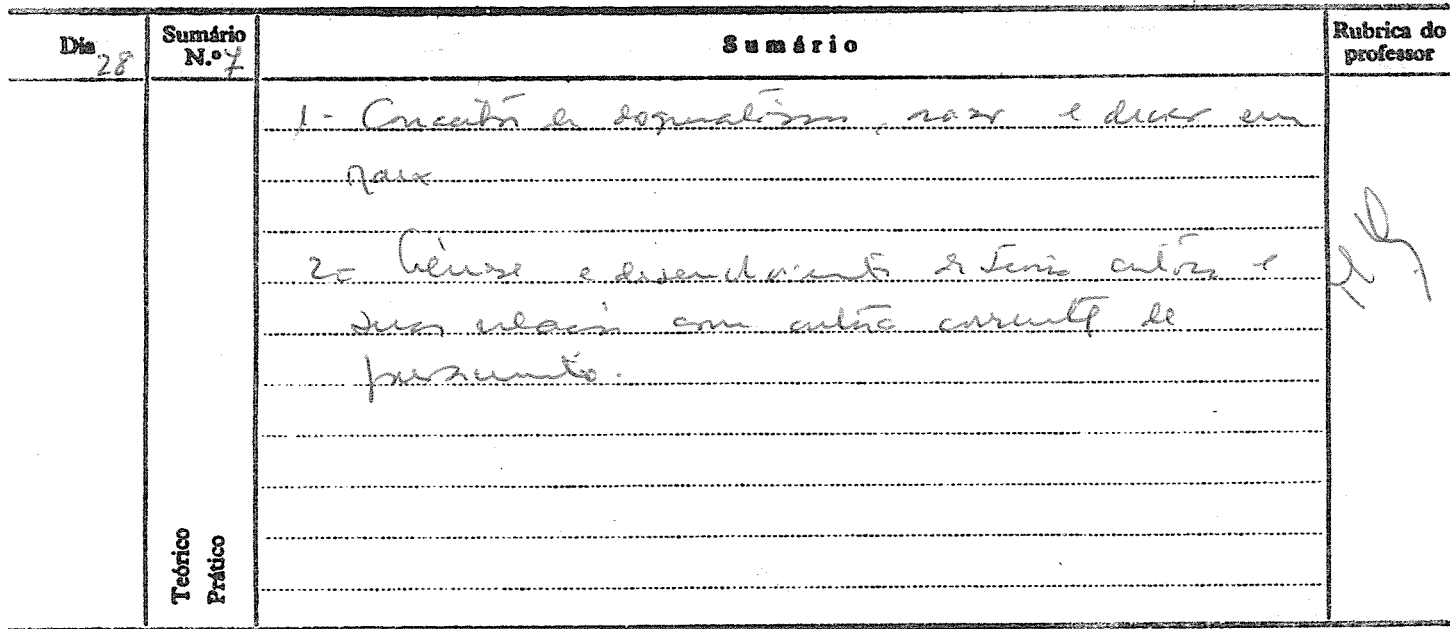 Dia 28
Sumário N.º 7
Sumário
Rubrica do professor
1- Conceitos de dogmatismo, e em
2- Génese e desenvolvimento da teoria crítica e
suas relações com outras correntes de
pensamento.
Teórico
Prático